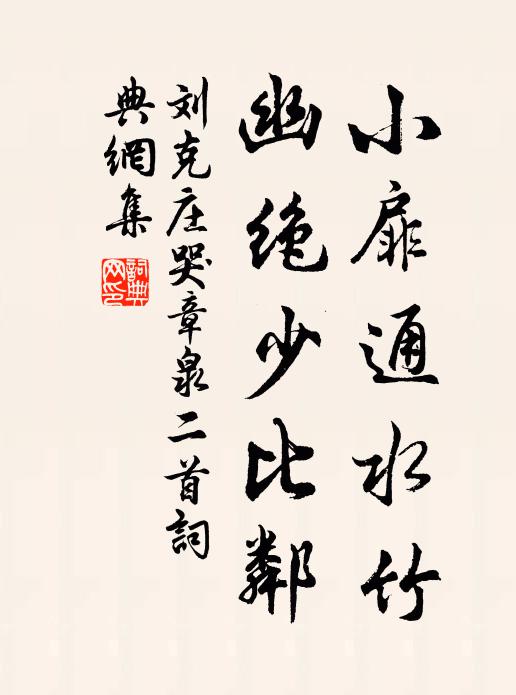 小扉通水竹
幽绝少比鄰
刘克庄哭章泉二首詞
典網集
詞典
网印